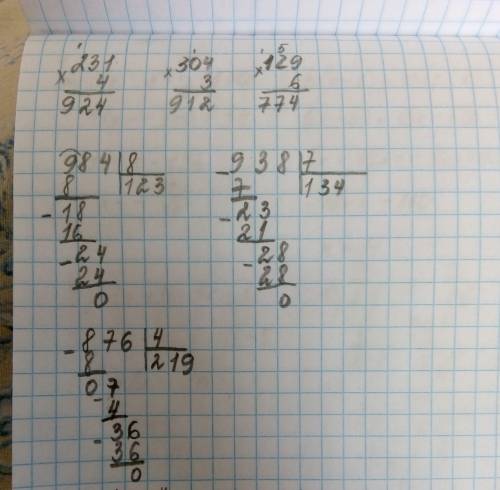 ¹ ¹ ¹ 5
231 304 129
× 4 × 3 × 6
924 912 774
984 | 8 - 938 | 7
8 123 7 134
- 18 - 23
16 21
- 24 - 28
24 28
0 0
- 876 | 4
8 219
07
- 4
- 36
36
0